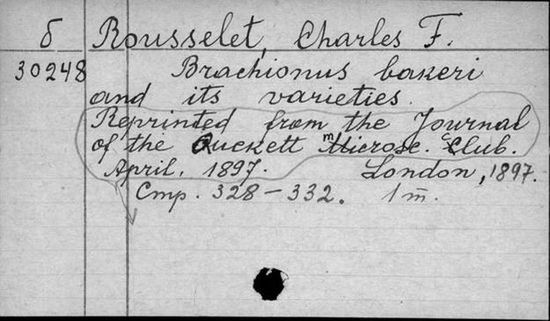 б Rousselet, Charles F.
30248 Brachionus bakeri
and its varieties.
Reprinted from the Journal
of the Quckett Microsc. Club.
April, 1897. London, 1897.
Стр. 328-332. 1 m.